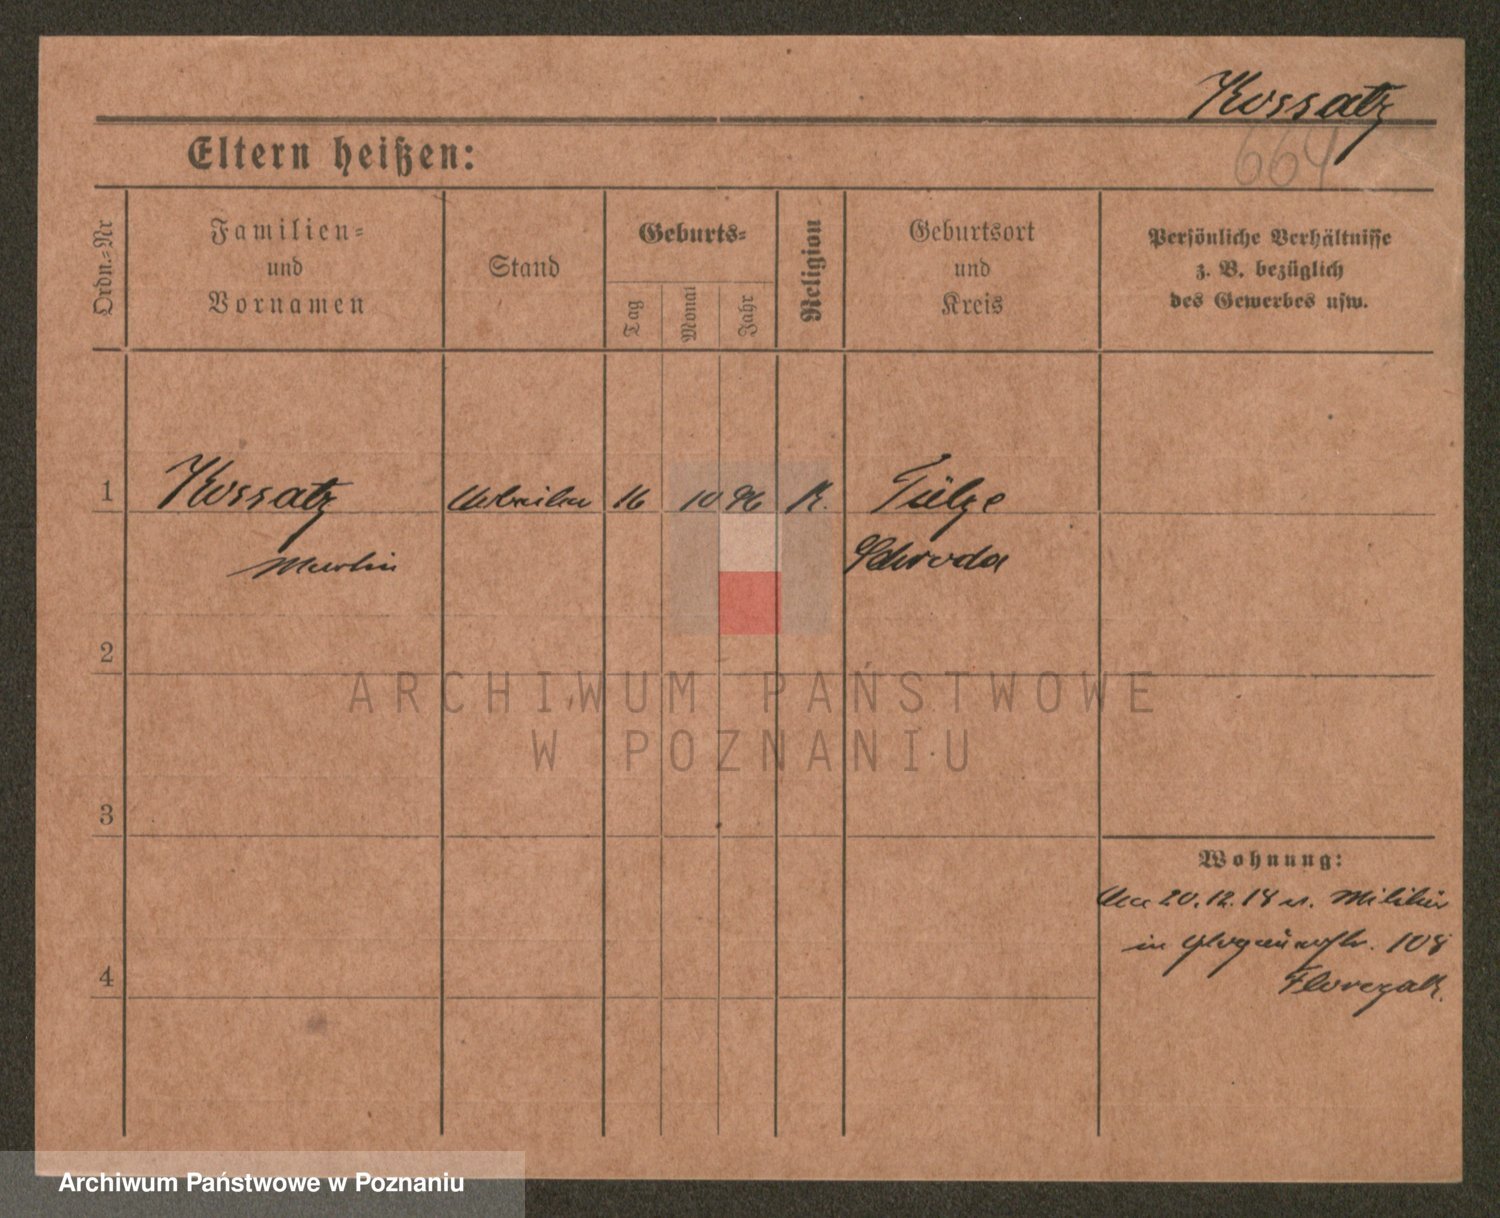 Kossatz
664
Eltern heißen:
Ordn.=Nr
Familien=
und
Vornamen
Stand
Geburts=
Tag
Monat
Jahr
Religion
Geburtsort
und
Kreis
Persönliche Verhältnisse
z. B. bezüglich
des Gewerbes usw.
1 Kossatz Arbeiter 16 10 96 K. Tülze
Martin Schroda
2
ARCHIWUM PAŃSTWOWE
W POZNANIU
3
Wohnung:
20.12.18 v. Militär
in Glogauerstr. 108
4
Florczak.
Archiwum Państwowe w Poznaniu